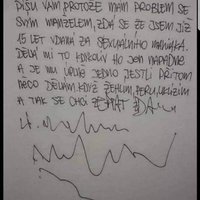 PÍŠU VÁM PROTOŽE MÁM PROBLÉM SE
SVÝM MANŽELEM, ZDÁ SE ŽE JSEM JIŽ
15 LET VDANÁ ZA SEXUÁLNÍHO MANIAKA.
DĚLÁ MI TO KDYKOLIV HO JEN NAPADNE
A JE MU ÚPLNĚ JEDNO JESTLI PŘITOM
NĚCO DĚLÁM. KDYŽ ŽEHLÍM, PERU, UKLÍZÍM
A TAK SE CHCI ZEPTAT